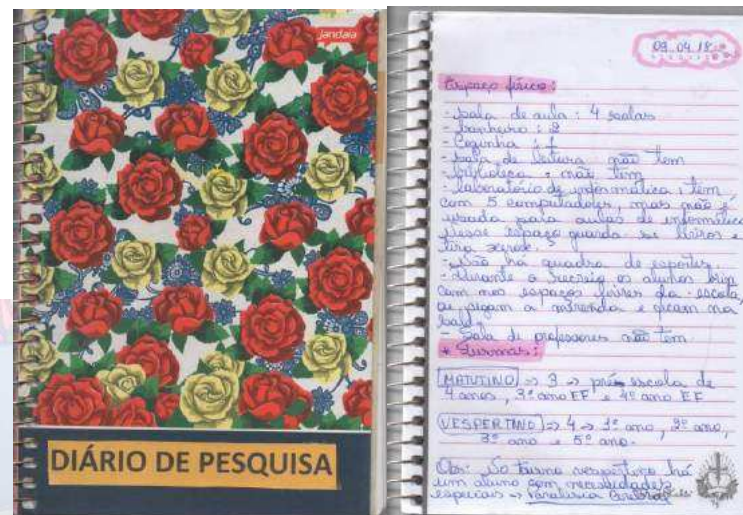 jandaia
DIÁRIO DE PESQUISA
09.04.18
Espaço físico:
- Sala de aula: 4 salas
- Banheiro: 2
- Cozinha: 1
- Sala de leitura não tem
- biblioteca: não tem
- laboratório de informática: tem
com 5 computadores, mas não é
usada para aulas de informática
nesse espaço guarda-se livros e
tira xerox.
- Não há quadra de esportes.
- durante o recreio os alunos brin
cam nos espaços livres da escola,
ou pegam a merenda e ficam na
sala.
- Sala de professores não tem
* Turmas:
MATUTINO => 3 -> pré-escola de
4 anos, 3º ano EF e 4º ano EF
VESPERTINO => 4 -> 1º ano, 2º ano,
3º ano e 5º ano.
Obs: No turno vespertino há
um aluno com necessidades
especiais -> Paralisia Cerebral